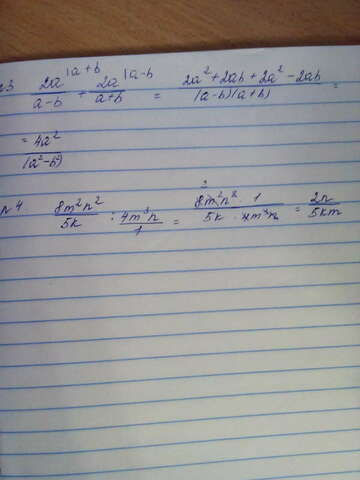 №3 2a/(a-b) |a+b + 2a/(a+b) |a-b = (2a²+2ab+2a²-2ab)/((a-b)(a+b)) =
= 4a²/(a²-b²)
№4 8m²n²/5k : 4m³n/1 = (8m²n² · 1)/(5k · 4m³n) = 2n/5km